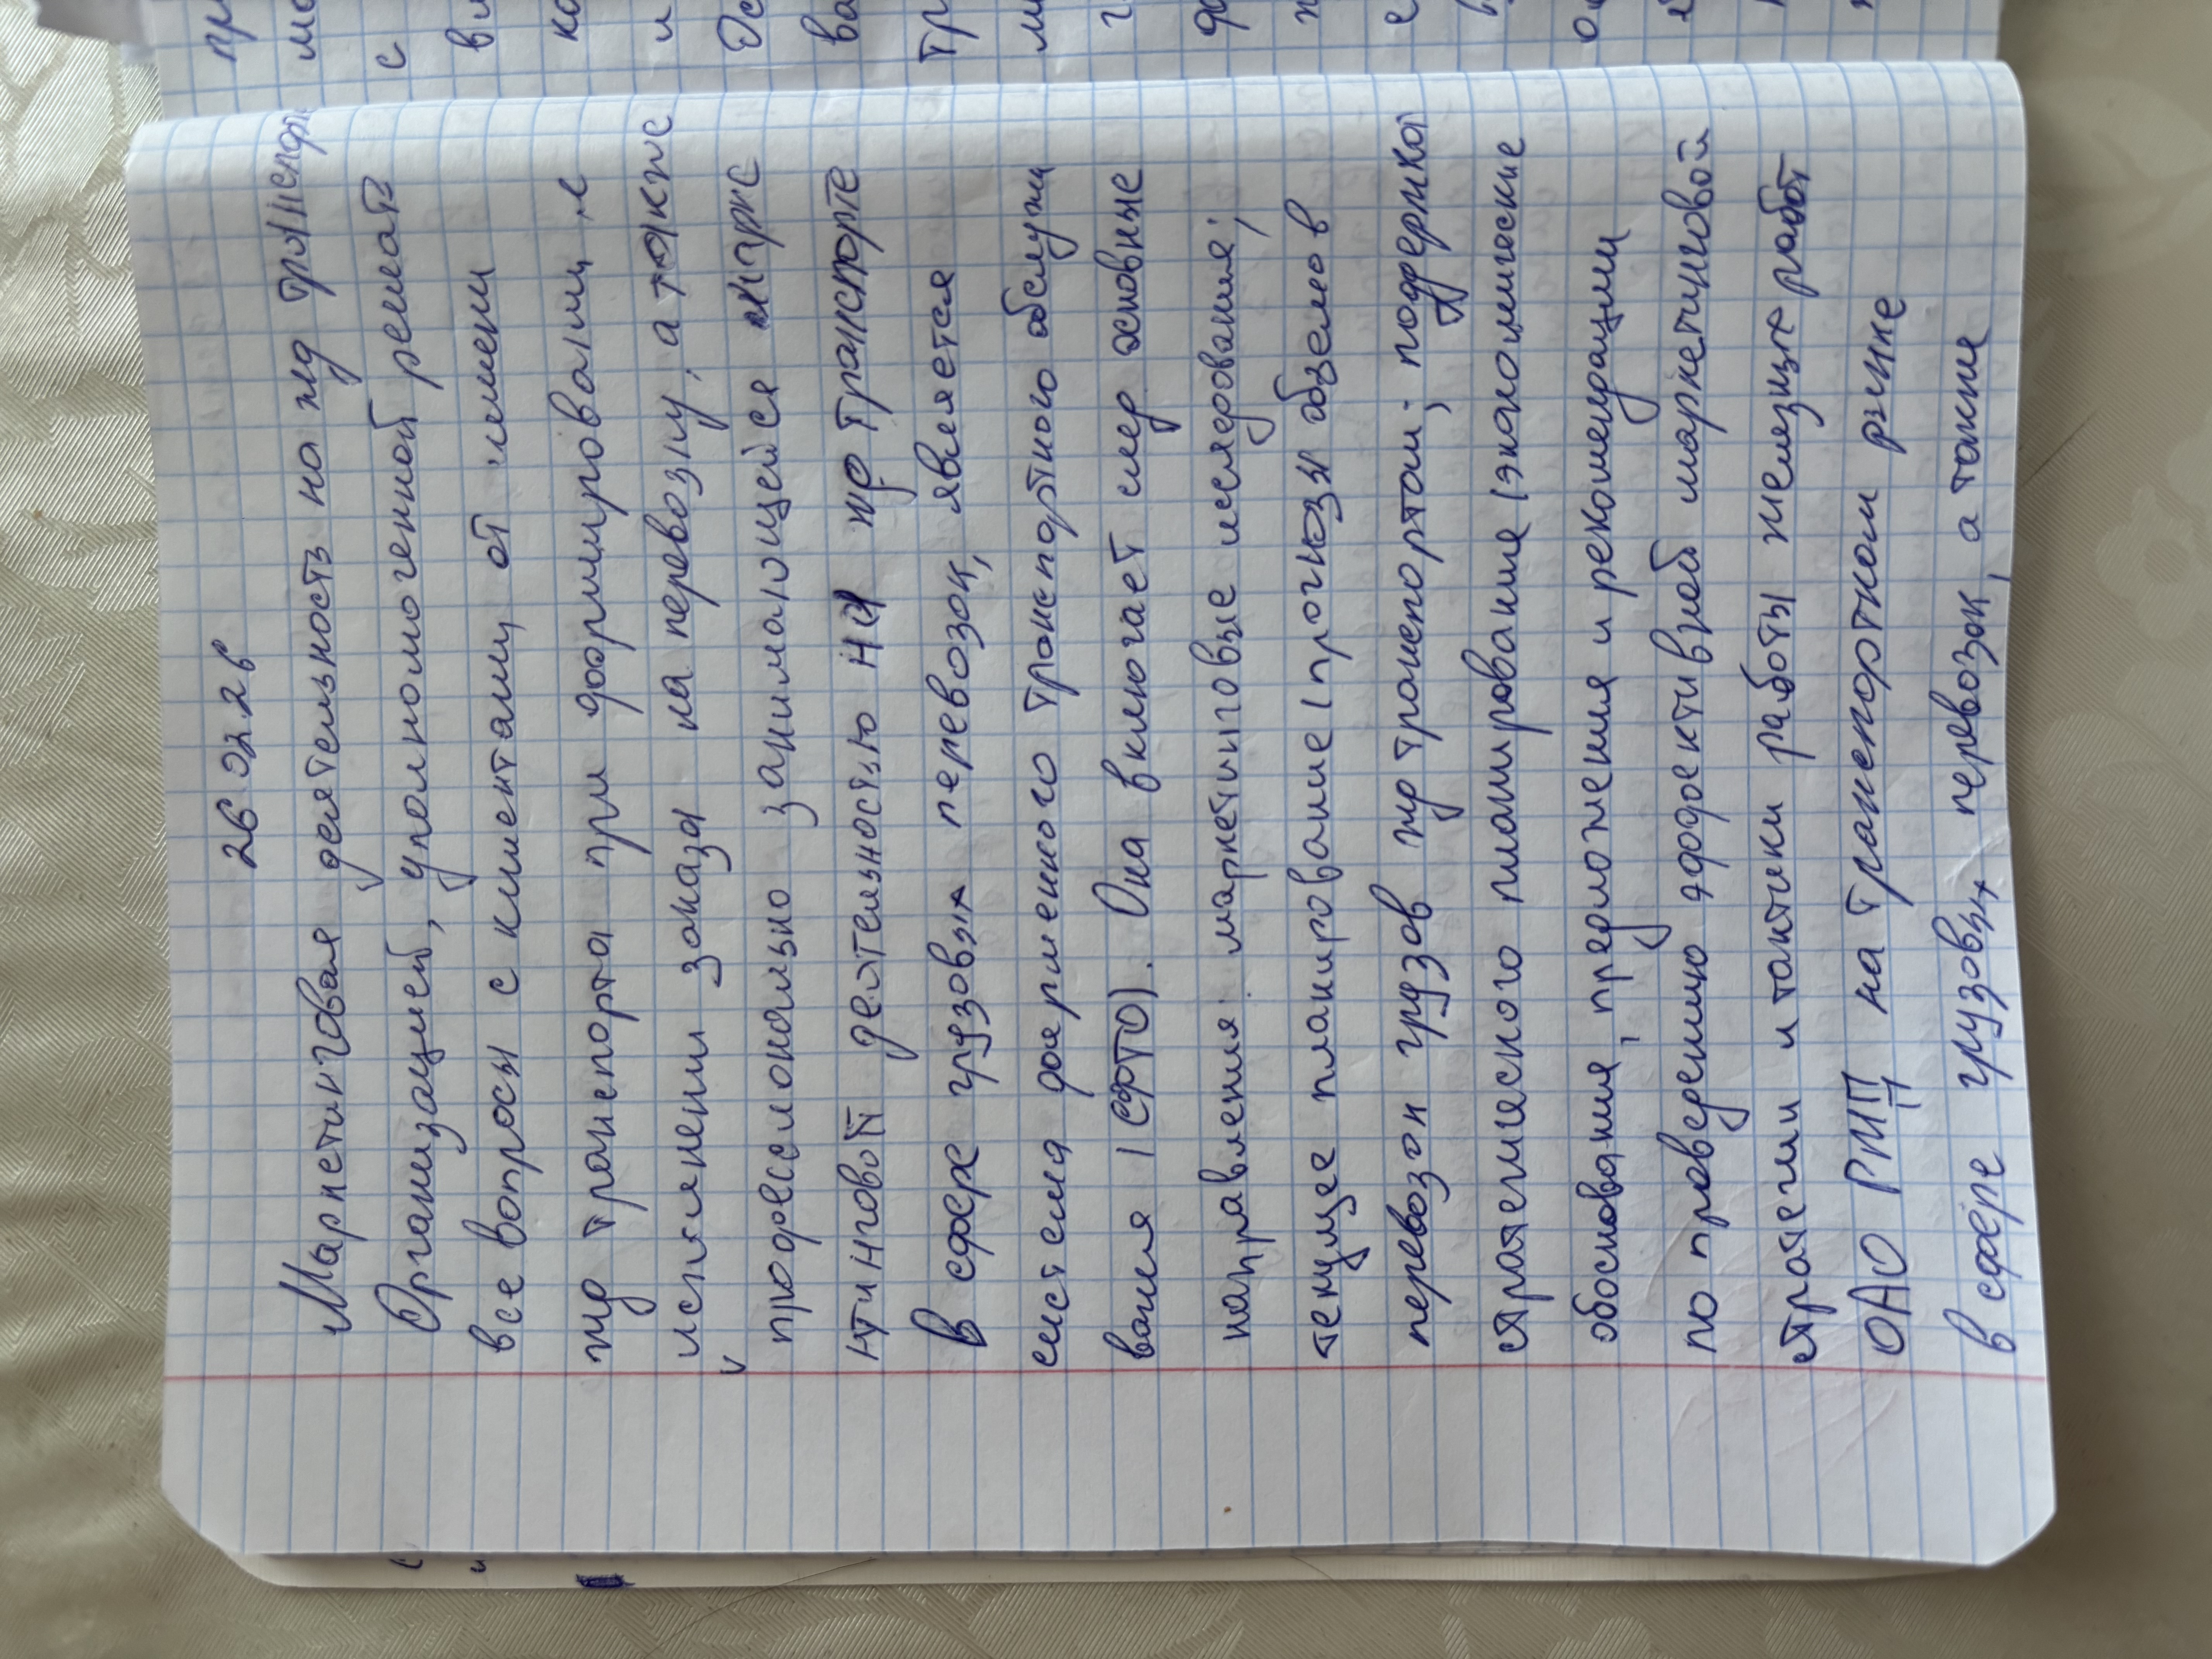 26.02.26
Маркетинговая деятельность на жд транспорте
Организацией, уполномоченной решать
все вопросы с клиентами от имени
жд транспорта при формировании и
исполнении заказа на перевозку, а также
профессионально занимающейся марке
нтинговой деятельностью на жд транспорте
в сфере грузовых перевозок, является
система фирменного транспортного обслужи
вания (СФТО). Она включает след основные
направления: маркетинговые исследования;
текущее планирование (прогнозы объемов
перевозок грузов жд транспортом; поддержка
стратегического планирование (экономические
обоснования, предложения и рекомендации
по проведению эффективной маркетинговой
стратегии и тактики работы железце работ
ОАО РЖД на транспортном рынке
в сфере грузовых перевозок, а также